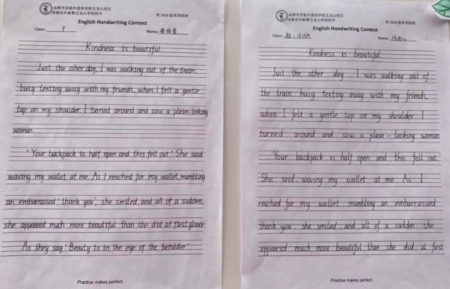 English Handwriting Contest
Class: 7 Name:
Kindness is beautiful
Just the other day, I was walking out of the train,
busy texting away with my friends, when I felt a gentle
tap on my shoulder. I turned around and saw a plain-looking
woman.
"Your backpack is half open and this fell out" She said
waving my wallet at me. As I reached for my wallet, mumbling
an embarrassed "thank you", she smiled and all of a sudden,
she appeared much more beautiful than she did at first glance
As they say "Beauty is in the eye of the beholder"
Practice makes perfect
English Handwriting Contest
Class: Name:
Kindness is beautiful
Just the other day, I was walking out of
the train, busy texting away with my friends,
when I felt a gentle tap on my shoulder. I
turned around and saw a plain-looking woman
Your backpack is half open and this fell out
She said waving my wallet at me. As I
reached for my wallet, mumbling an embarrassed
thank you, she smiled and all of a sudden, she
appeared much more beautiful than she did at first
Practice makes perfect